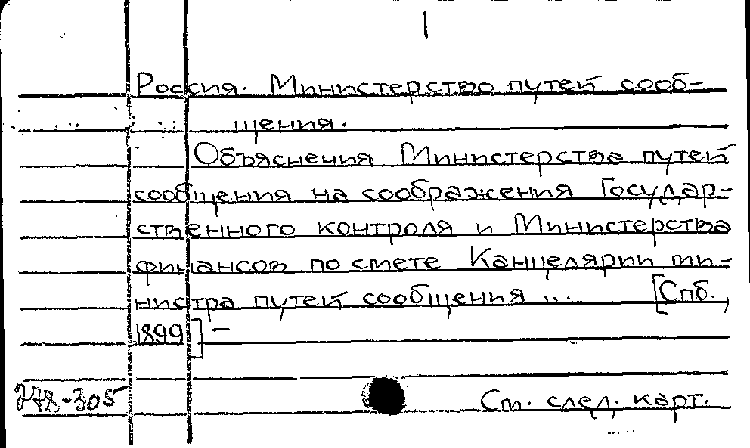 1
Россия. Министерство путей сооб-
щения.
Объяснения Министерства путей
сообщения на соображения Государ-
ственного контроля и Министерства
финансов по смете Канцелярии ми-
нистра путей сообщения ... [Спб.,
1899] –
278-305 См. след. карт.